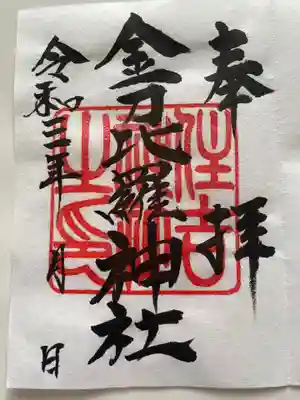 奉拝
金刀比羅神社
令和三年 月 日